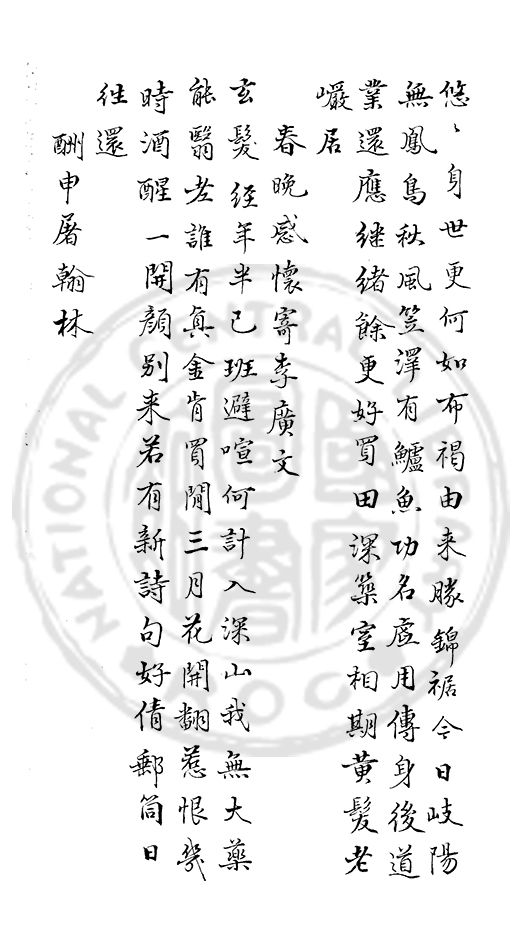 悠〻身世更何如布褐由来勝錦裾今日岐陽
無鳳鳥秋風笠澤有鱸魚功名虛用傳身後道
業還應継緒餘更好買田深築室相期黄髮老
巖居
春晚感懷寄李廣文
玄髮經年半已班避喧何計入深山我無大藥
能醫老誰有真金肯買閒三月花開翻惹恨幾
時酒醒一開顏別来若有新詩句好倩郵筒日
往還
酬申屠翰林
NATIONAL CENTRAL LIBRARY
R.O.C.